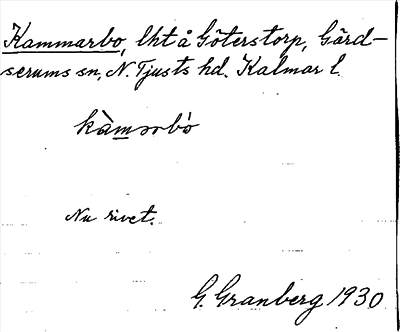 Kammarbo, lht å Göterstorp, Gärd-
serums sn, N. Tjusts hd. Kalmar l.
Nu rivet.
G. Granberg 1930